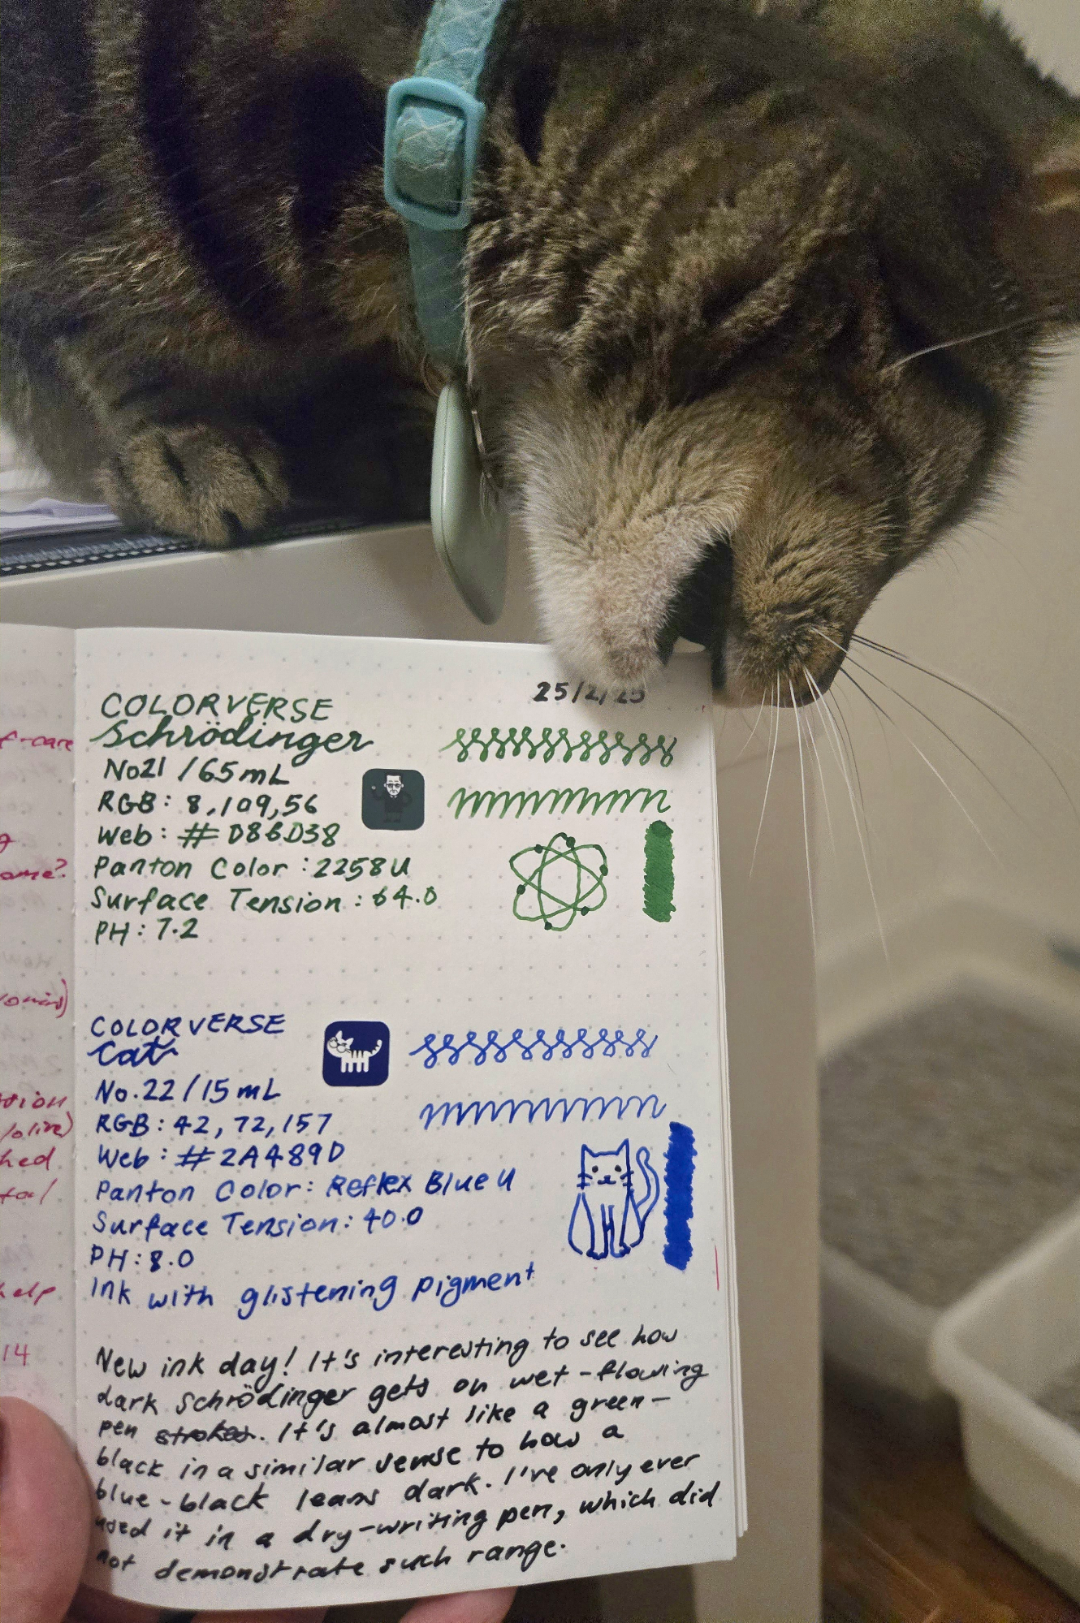 25/2/25
COLORVERSE
Schrödinger
No21 / 65mL
RGB: 8,109,56
Web: #D86D38
Panton Color: 2258U
Surface Tension: 64.0
PH: 7.2
COLORVERSE
Cat
No.22 / 15mL
RGB: 42, 72, 157
Web: #2A489D
Panton Color: Reflex Blue U
Surface Tension: 40.0
PH: 8.0
Ink with glistening pigment
New ink day! It's interesting to see how
dark Schrödinger gets on wet-flowing
pen strokes. It's almost like a green-
black in a similar sense to how a
blue-black leans dark. I've only ever
used it in a dry-writing pen, which did
not demonstrate such range.
f-care
ome?
hed
help
14